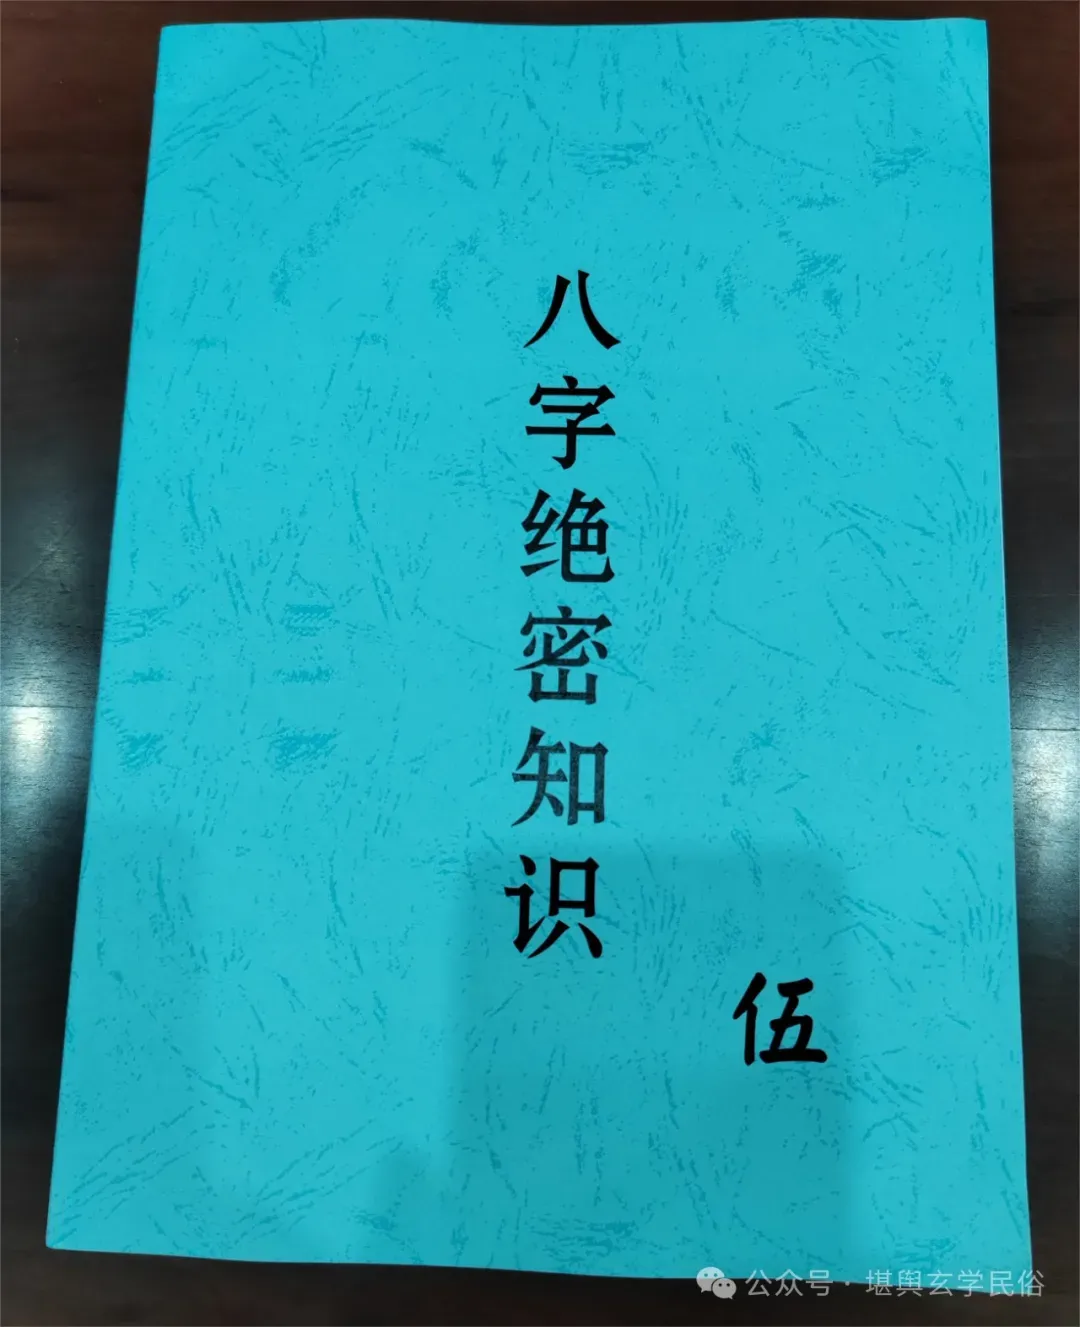 八字绝密知识
伍
公众号·堪舆玄学民俗